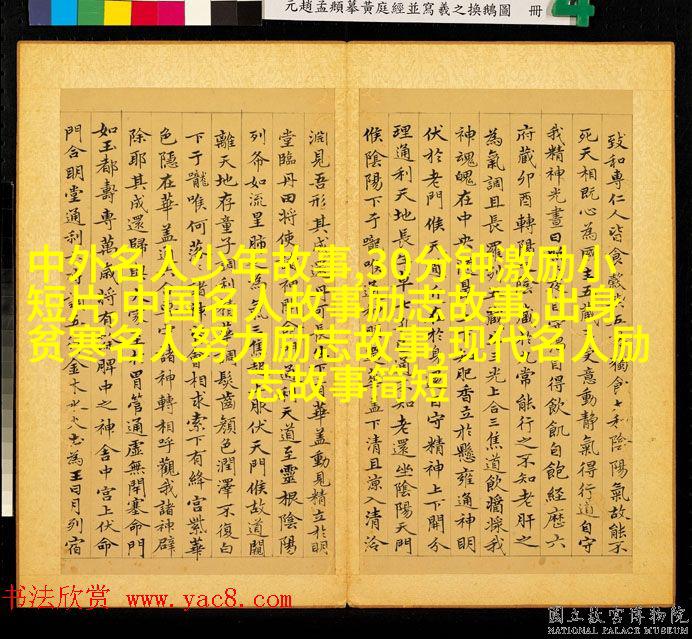 元趙孟頫摹黃庭經並寫羲之換鵝圖 冊
4
致和專仁人皆食穀與五味獨食太和陰陽氣故能不
死天相既心為國主五藏王意動靜氣得行道自守
我精神光晝日昭昭夜自守渴自得飲飢自飽經歷六
府藏卯酉轉陽之陰藏於九常能行之不知老肝之
為氣調且長羅列五藏生三光上合三焦道飲醬漿我
神魂魄在中央隨鼻上下知肥香立於懸雍通神明
伏於老門候天道近在於身還自守精神上下開分
理通利天地長生草七孔已通不知老還坐陰陽天門
候陰陽下于嚨喉通神明過華蓋下清且涼入清泠
淵見吾形其成還丹可長生下有華蓋動見精立於明
堂臨丹田將使諸神開命門通利天道至靈根陰陽
列布如流星肺之為氣三焦起上服伏天門候故道闚
離天地存童子調利精華調髮齒顏色潤澤不復白
下于嚨喉何落落諸神皆會相求索下有絳宮紫華
色隱在華蓋通神廬專守諸神轉相呼觀我諸神辟
除耶其成還歸與大家至於胃管通虛無閉塞命門
如玉都壽專萬歲將有餘脾中之神舍中宮上伏命
門合明堂通利六府調五行金木水火土為王日月列宿
中外名人少年故事,30分钟激励小
短片,中国名人故事励志故事,出身
贫寒名人努力励志故事,现代名人励
志故事简短
书法欣赏 www.yac8.com
國立故宮博物院
NATIONAL PALACE MUSEUM